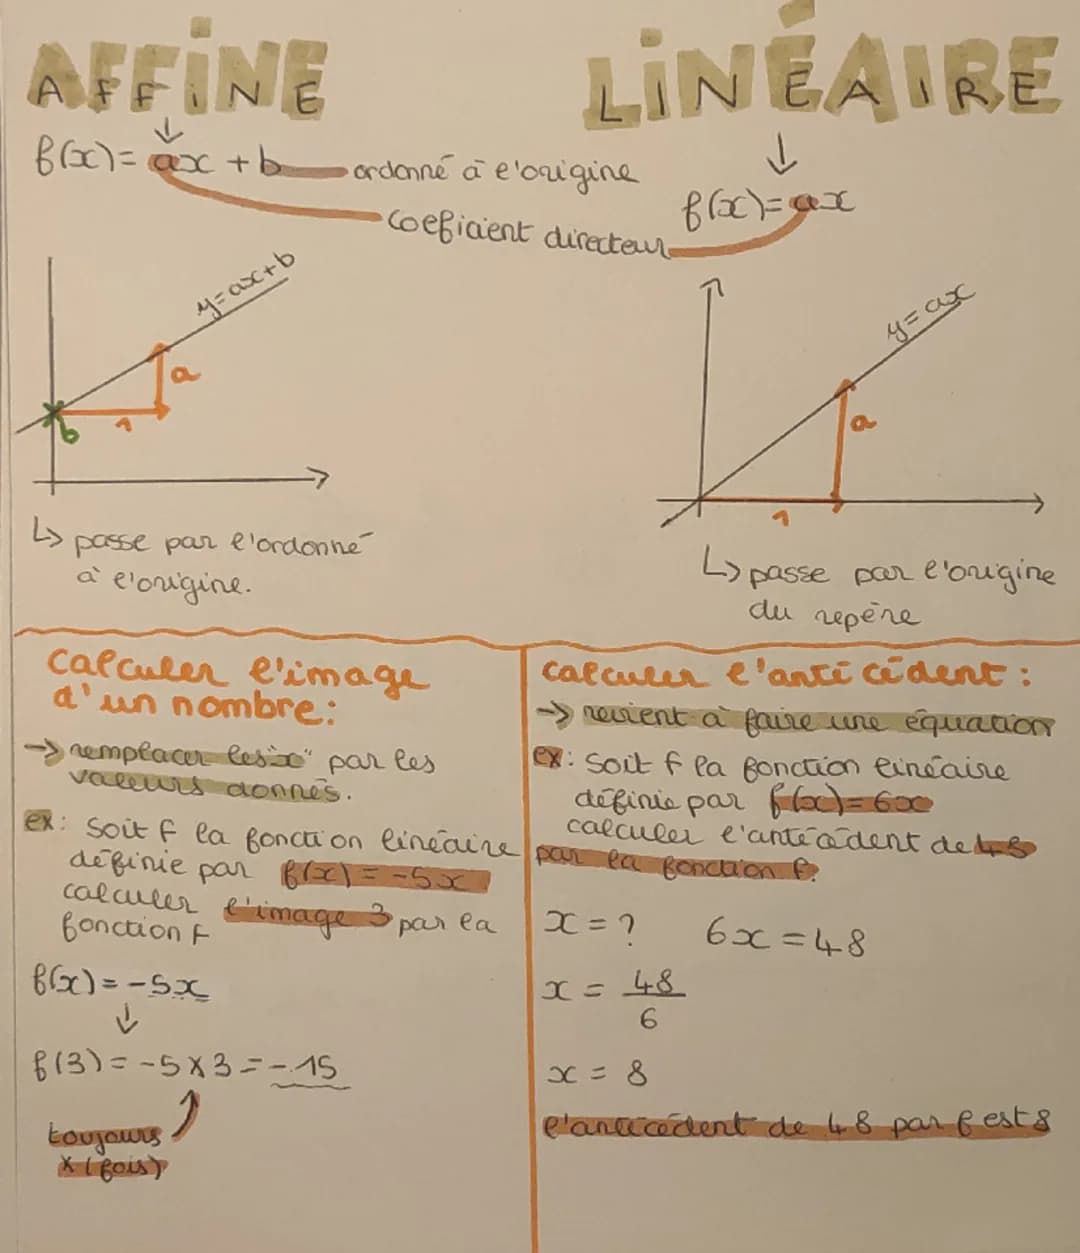 AFFINE
f(x) = ax + b
ordonné à l'origine
coeficient directeur
y=ax+b
a
1
b
↳ passe par l'ordonné
à l'origine.
LINÉAIRE
f(x)=ax
y=ax
a
1
↳ passe par l'origine
du repère
calculer l'image
d'un nombre:
→ remplacer les "x" par les
valeurs donnés.
ex: Soit f la fonction linéaire
définie par f(x) = -5x
calculer l'image 3 par la
fonction f
f(x) = -5x
f(3) = -5 x 3 = -15
toujours
x (fois)
calculer l'antécédent :
→ revient à faire une équation
ex: Soit f la fonction linéaire
définie par f(x) = 6x
calculer l'antécédent de 48
par la fonction f.
x = ? 6x = 48
x = 48
6
x = 8
l'antécédent de 48 par f est 8